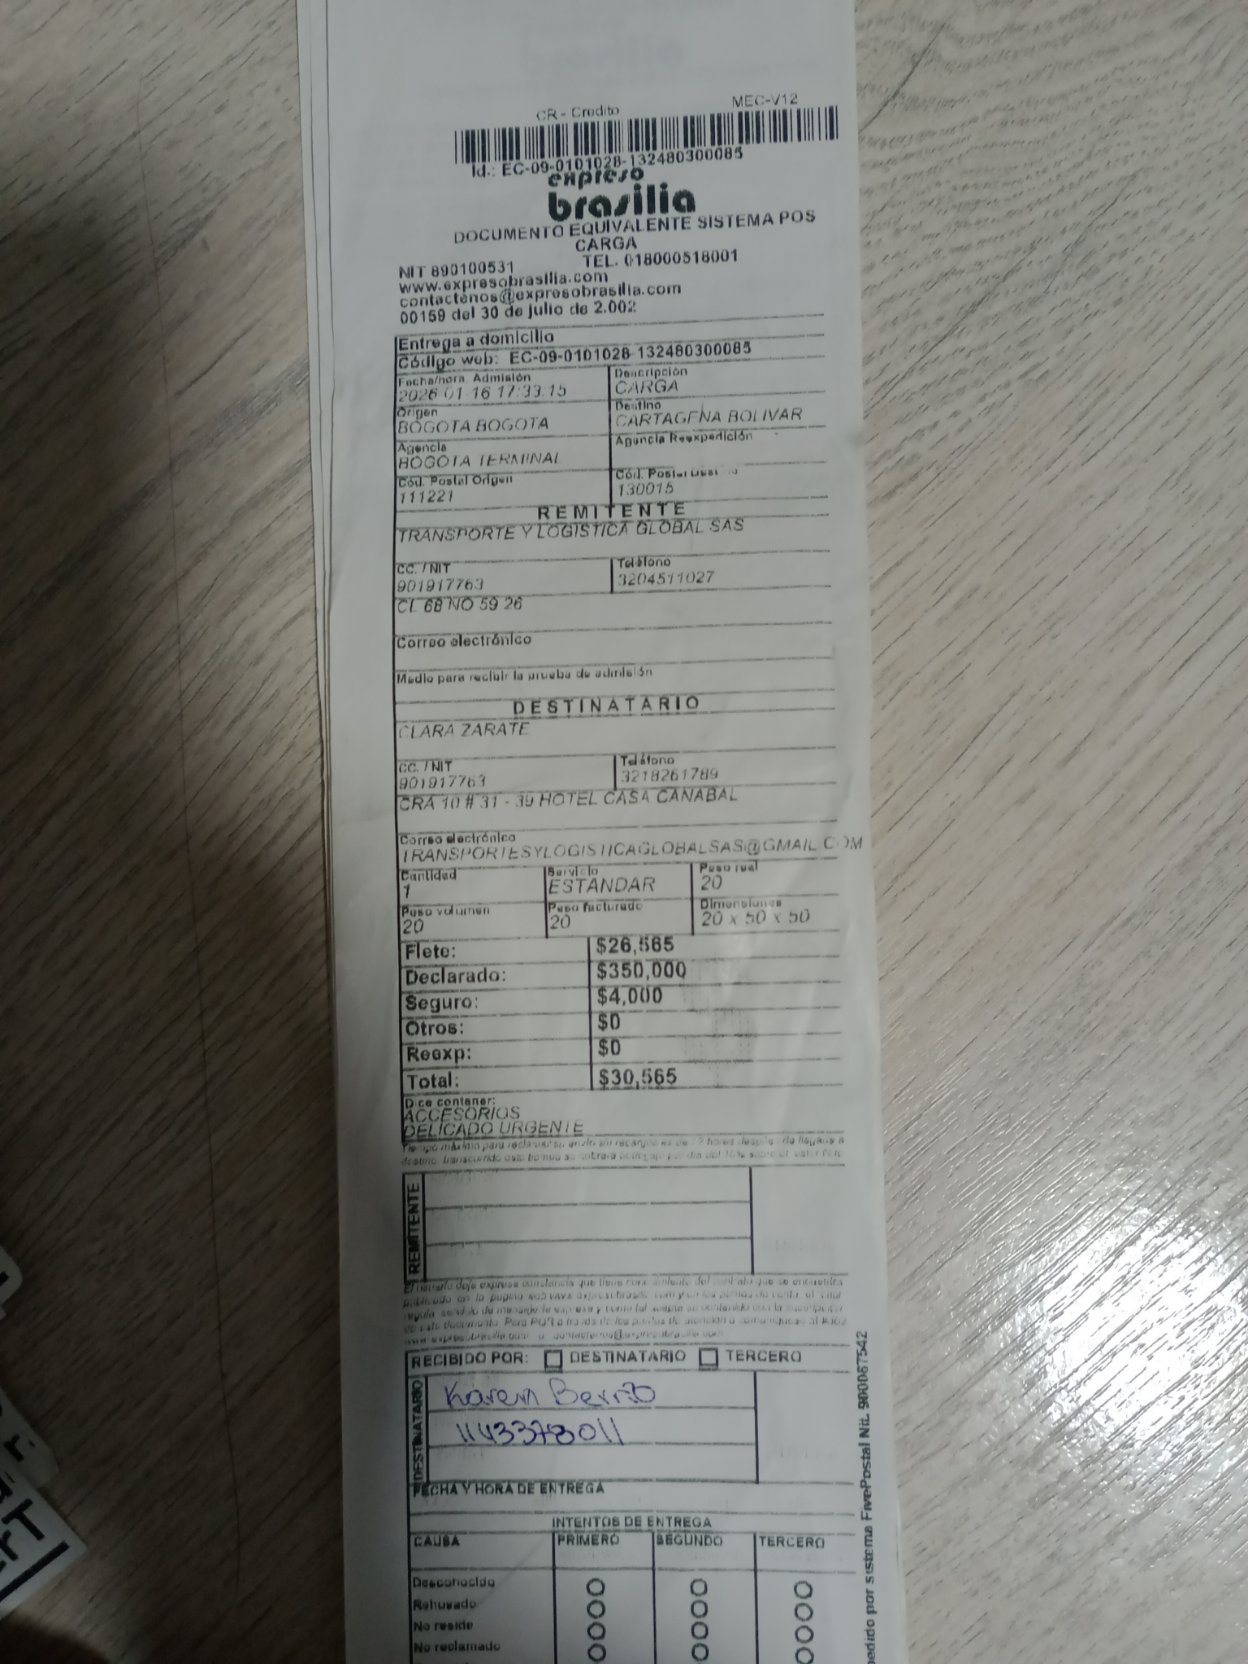 CR - Credito MEC-V12
Id.: EC-09-0101028-132480300085
expreso
brasilia
DOCUMENTO EQUIVALENTE SISTEMA POS
CARGA
NIT 890100531 TEL. 018000518001
www.expresobrasilia.com
contactenos@expresobrasilia.com
00159 del 30 de julio de 2.002
Entrega a domicilio
Código web: EC-09-0101028-132480300085
Fecha/hora Admisión Descripción
2026-01-16 17:33:15 CARGA
Origen Destino
BOGOTA BOGOTA CARTAGENA BOLIVAR
Agencia Agencia Reexpedición
BOGOTA TERMINAL
Cód. Postal Origen Cód. Postal
111221 130015
REMITENTE
TRANSPORTE Y LOGISTICA GLOBAL SAS
CC. / NIT Teléfono
901917763 3204511027
CL 68 NO 59 26
Correo electrónico
Medio para recibir la prueba de admisión
DESTINATARIO
CLARA ZARATE
CC. / NIT Teléfono
901917763 3218261789
CRA 10 # 31 - 39 HOTEL CASA CANABAL
Correo electrónico
TRANSPORTESYLOGISTICAGLOBALSAS@GMAIL.COM
Cantidad Servicio Peso real
1 ESTANDAR 20
Peso volumen Peso facturado Dimensiones
20 20 20 x 50 x 50
Flete: $26,565
Declarado: $350,000
Seguro: $4,000
Otros: $0
Reexp: $0
Total: $30,565
Dice contener:
ACCESORIOS
DELICADO URGENTE
REMITENTE
RECIBIDO POR: DESTINATARIO TERCERO
DESTINATARIO
Karen Berrio
1143378011
FECHA Y HORA DE ENTREGA
INTENTOS DE ENTREGA
CAUSA PRIMERO SEGUNDO TERCERO
Desconocido
Rehusado
No reside
No reclamado
pedido por sistema FivePostal Nit. 900067542